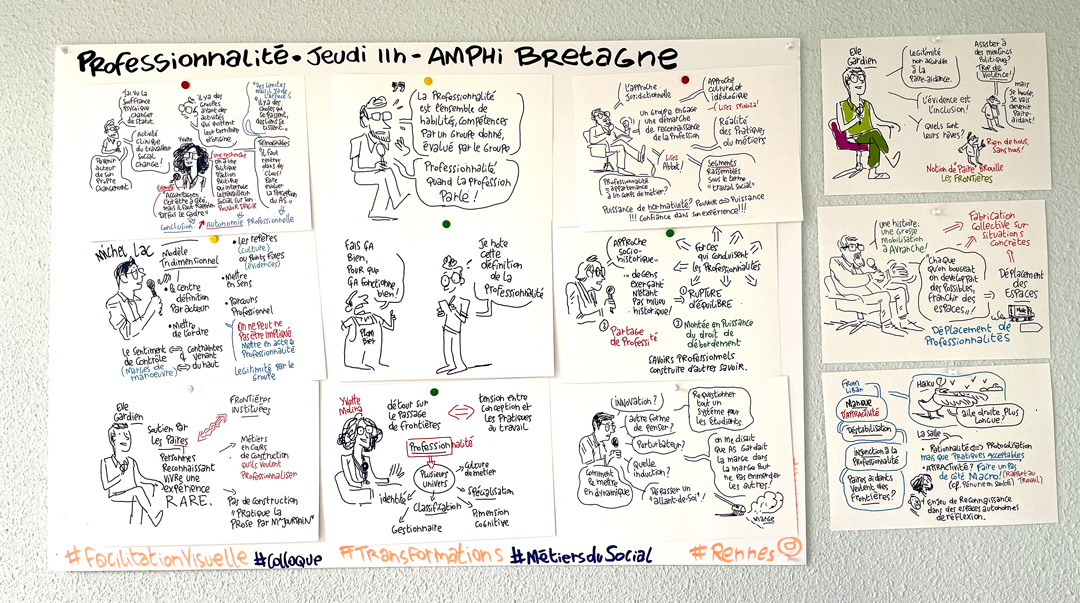 Professionnalité • Jeudi 11h - AMPHi BRETAGNE
J'ai vu la
souffrance
psychique
changer
de statut.
Activité
clinique
du travailleur
social change!
Devenir
acteur
de son
propre
changement.
il y a des
groupes
ayant des
activités
qui quittent
leur territoire
d'origine
Yvette
"Il y a des
choses qui
se passent,
des liens se
tissent."
Témoignages
il faut
rentrer
dans les
clous!
Faire
évoluer
la fonction
des AS"
une recherche
on a une
politique
d'action
politique
qui interroge
le travailleur
social sur son
pouvoir d'agir
mais il faut
parfois le cadre"
Conclusion
Autonomie Professionnelle
La Professionnalité
est l'ensemble de
habilités, compétences
par un groupe donné,
évalué par le groupe
Professionnalité
quand la profession
parle!
L'approche
juridictionnelle
Approche
culturel et
idéologique
Lisez Spinoza!
Un groupe engage
une démarche
de reconnaissance
de la profession
Réalité
des pratiques
du métiers
Lisez
Abbot!
Segments
rassemblés
sous le terme
"travail social"
Professionnalité
= appartenance
à un corps de métier?
Puissance de normativité? Pouvoir ⇔ Puissance
!!! Confiance dans son expérience!!!
Michel Lac
Modèle
Tridimensionnel
• le centre
définition
par acteur
• Mettre
de l'ordre
Le sentiment
de contrôle
(Marges de
manoeuvre)
⇔
Contraintes
venant
du haut
• Les repères
(culture)
ou points fixes
(évidences)
• Mettre
en sens
• Parcours
professionnel
On ne peut ne
pas être impliqué
Mettre en acte la
Professionnalité
Légitimité par le
groupe
Fais ça
bien,
pour que
ça fonctionne
bien!
Plombier
Je note
cette
définition
de la
professionnalité
Approche
socio-
historique
de gens
exerçant
n'étant
pas milieu
historique!
forces
qui conduisent
les professionnalités
① Rupture
d'équilibre
② Partage
de professité
③ Montée en puissance
du droit de
débordement
Savoirs professionnels
construire d'autres savoir.
Eve
Gardien
Soutien par
les Paires
Personnes
Reconnaissant
vivre une
expérience
RARE.
Frontières
instituées
Métiers
en cours
de construction
qu'ils veulent
professionnaliser
Pas de construction
"Pratique la
prose par Mr Jourdain"
Yvette
Molina
détour sur
le passage
de frontières
⇔
tension entre
conception et
les pratiques
au travail
Professionnalité
Plusieurs
univers
Culture
de métier
identité
Spécialisation
Classification
Dimension
cognitive
Gestionnaire
innovation?
autre forme
de penser?
Perturbateur?
quelle
induction?
Comment
le mettre
en dynamique
Dépasser un
"allant-de-soi"!
Requestionner
tout un
système pour
les étudiants.
On me disait
que AS gardait
la marge dans
la marge pour
ne pas emmerder
les autres!
Marge
#FacilitationVisuelle #Colloque #Transformations #MétiersduSocial #Rennes
Eve
Gardien
Légitimité
non accordée
à la
Paire-aidance.
L'évidence est
l'inclusion!
Quels sont
leurs rêves?
Assister à
des meetings
politiques?
Trop de
violence!
mais
je bouge,
je vais
devenir
Paire-
aidant!
Rien de nous,
sans nous!
Notion de "Paire" Brouille
les Frontières
une histoire:
une grosse
mobilisation
à Avranche!
"Chaque
qu'on bougeait
on développait
des possibles,
franchir des
espaces"!
Fabrication
collective sur
situations
concrètes
Déplacement
des
espaces
Déplacement de
Professionnalités
From
Liban
Manque
d'attractivité
Déstabilisation
Insertion à la
Professionnalité
Paires aidants
veulent des
frontières?
Haiku
aile droite plus
longue?
La Salle
• Rationalité ⇔ Protocolisation
mais que pratiques acceptables
• Attractivité? Faire un pas
de côté Macro! (Rapport au
travail)
(cf. pénurie en santé)
Enjeu de reconnaissance
dans des espaces autonomes
de réflexion.